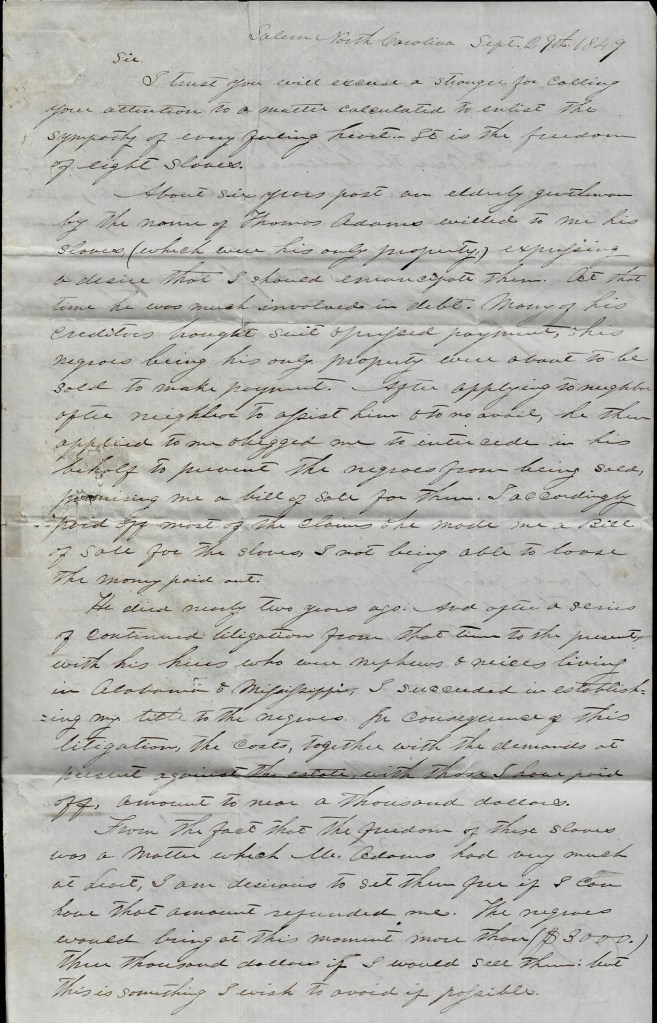 Salem North Carolina Sept. 29th. 1849
Sir.
I trust you will excuse a stranger for calling
your attention to a matter calculated to enlist the
sympathy of every feeling heart. It is the freedom
of eight slaves.
About six years past an elderly gentleman
by the name of Thomas Adams willed to me his
slaves (which were his only property,) expressing
a desire that I should emancipate them. At that
time he was much involved in debt. Many of his
creditors brought suit & pressed payment, & his
negroes being his only property were about to be
sold to make payment. After applying to neighbor
after neighbor to assist him & to no avail, he then
applied to me & begged me to intercede in his
behalf to prevent the negroes from being sold,
promising me a bill of sale for them. I accordingly
paid off most of the claims & he made me a Bill
of sale for the slaves, I not being able to loose
the money paid out.
He died nearly two years ago. And after a series
of continued litigation from that time to the present,
with his heirs who were nephews & nieces living
in Alabama & Mississippi, I succeeded in establish-
=ing my title to the negroes. In consequence of this
litigation, the costs, together with the demands at
present against the estate, with those I have paid
off, amount to near a thousand dollars.
From the fact that the freedom of these slaves
was a matter which Mr. Adams had very much
at heart, I am desirous to set them free if I can
have that amount refunded me. The negroes
would bring at this moment more than ($3000.)
three thousand dollars if I would sell them: but
this is something I wish to avoid if possible.